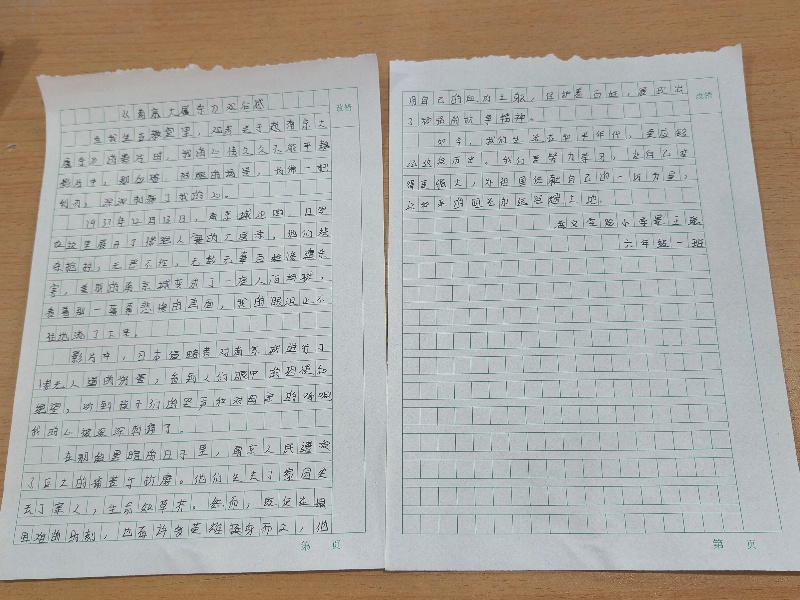 《南京大屠杀》观后感
当我坐在教室里，观看关于南京大
屠杀的影片时，我的心情久久不能平静
影片中，那血腥、残酷的场景，仿佛一把
利刃，深深刺痛了我的心。
1937年12月13日，南京城沦陷，日军
在这里展开了惨绝人寰的大屠杀，他们烧
杀抢掠，无恶不作，无数无辜百姓惨遭杀
害，美丽的南京城变成了一座人间地狱，
看着那一幕幕悲惨的画面，我的眼泪止不
住地流了下来。
影片中，日本侵略者对南京城进行了
惨无人道的，看到人们眼中的恐惧和
绝望，听到孩子们的哭声和
我的心被深深刺痛了。
在那段黑暗的日子里，南京人民遭受
了巨大的痛苦与折磨。他们失去了家园失
去了家人，生命如草芥。然而，既使在最
困难的时刻，也有许多英雄挺身而出，他
用自己的血肉之躯，保护着百姓，展现出
了顽强的抗争精神。
如今，我们生活在和平年代，更应铭
记这段历史。我们要努力学习，让自己变
得更强大，为祖国贡献自己的一份力量，
让和平的阳光永远照耀大地。
小学
六年级一班
改错
改错
第 页
第 页